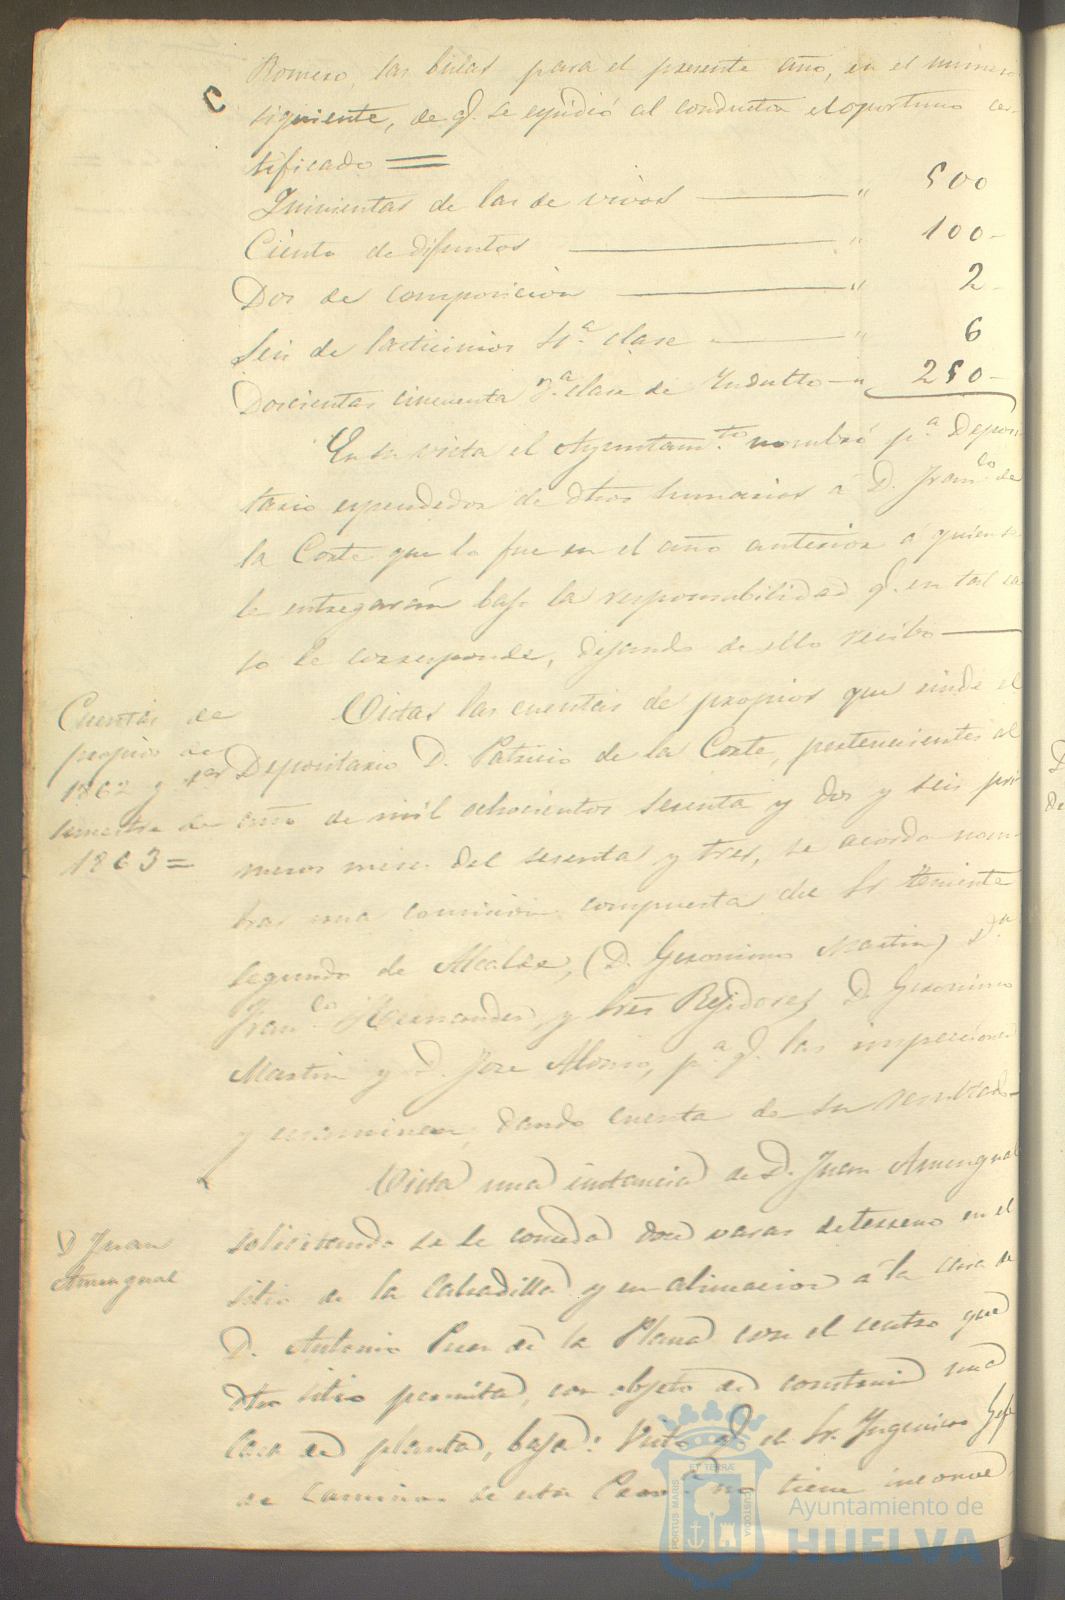 Romero, las bulas para el presente año, en el numero
siguiente, de q.e se espidió al conductor el oportuno cer-
tificado =
Quinientas de las de vivos " 500
Ciento de difuntos " 100-
Dos de composicion " 2-
Seis de lacticinios 4.ª clase " 6
Doscientas cincuenta 3.ª clase de Yndulto " 250-
En su vista el Ayuntam.to nombró p.ª Deposi-
tario espendedor de dhos sumarios á D. Fran.co de
la Corte que lo fue en el año anterior á quien se
le entregarán bajo la responsabilidad q.e en tal ca
so le corresponde, dejando de ello recibo
Cuentas de
propios de
1862 y 1er
semestre de
1863 =
Vistas las cuentas de propios que rinde el
Depositario D. Patricio de la Corte, pertenecientes al
año de mil ochocientos sesenta y dos y seis pri-
meros meses del sesenta y tres, se acordó nom-
brar una comision compuesta del Sr teniente
segundo de Alcalde, (D. Geronimo Martin) D.n
Fran.co Hernandez, y Sres Rejidores D. Geronimo
Martin y D. Jose Alonso, p.ª q.e las inspeccionen
y examinen, dando cuenta de su resultado
D Juan
Amengual
Vista una instancia de D. Juan Amengual
solicitando se le conceda doce varas de terreno en el
sitio de la Calzadilla y en alineacion á la casa de
D. Antonio Perez de la Plana con el centro que
dho sitio permita, con objeto de construir una
Casa en planta, baja: Visto q.e el Sr. Yngeniero Gefe
de Caminos de esta Prov.a no tiene inconve
PORTUS MARIS ET TERRÆ CUSTODIA
Ayuntamiento de
HUELVA